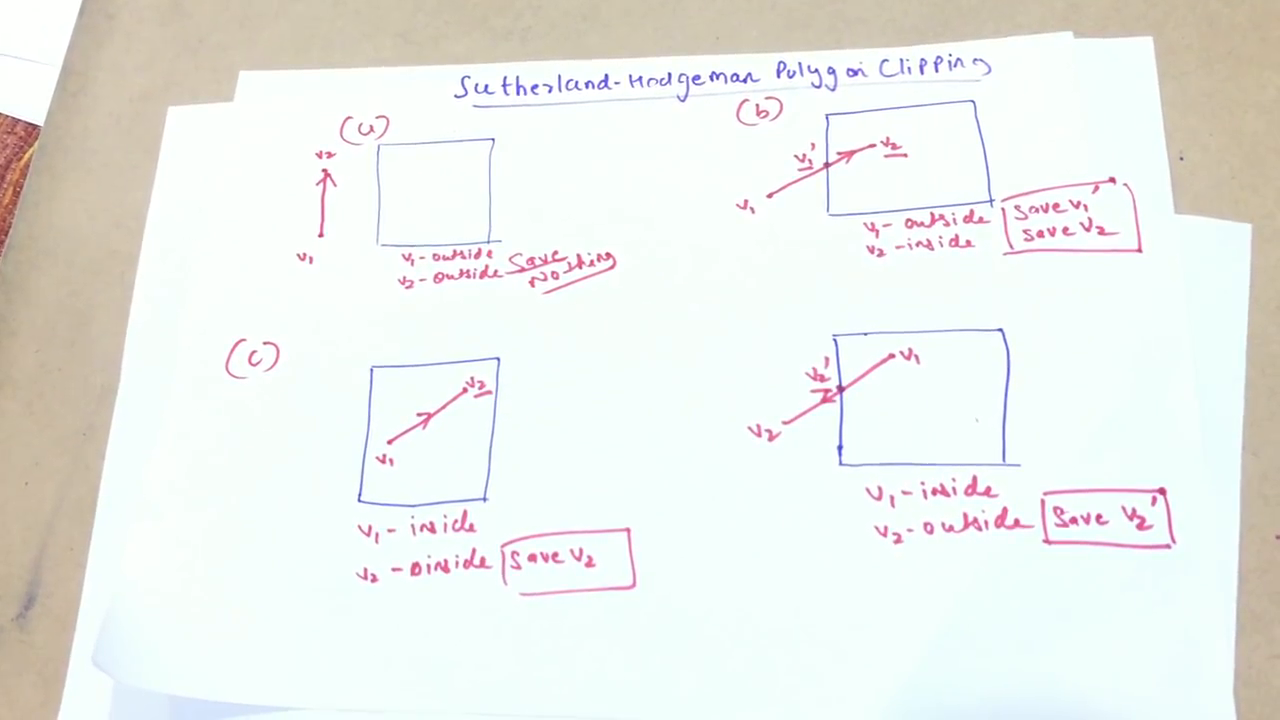 Sutherland-Hodgeman Polygon Clipping
(a)
v2
v1
v1-outside
v2-outside
Save
Nothing
(b)
v1'
v2
v1
v1-outside
v2-inside
Save v1'
save v2
(c)
v2
v1
v1-inside
v2-inside
Save v2
v1
v2'
v2
v1-inside
v2-outside
Save v2'